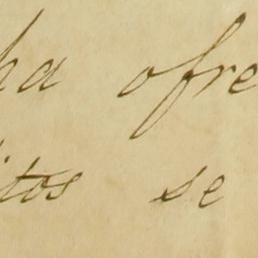 ha ofre
itos se